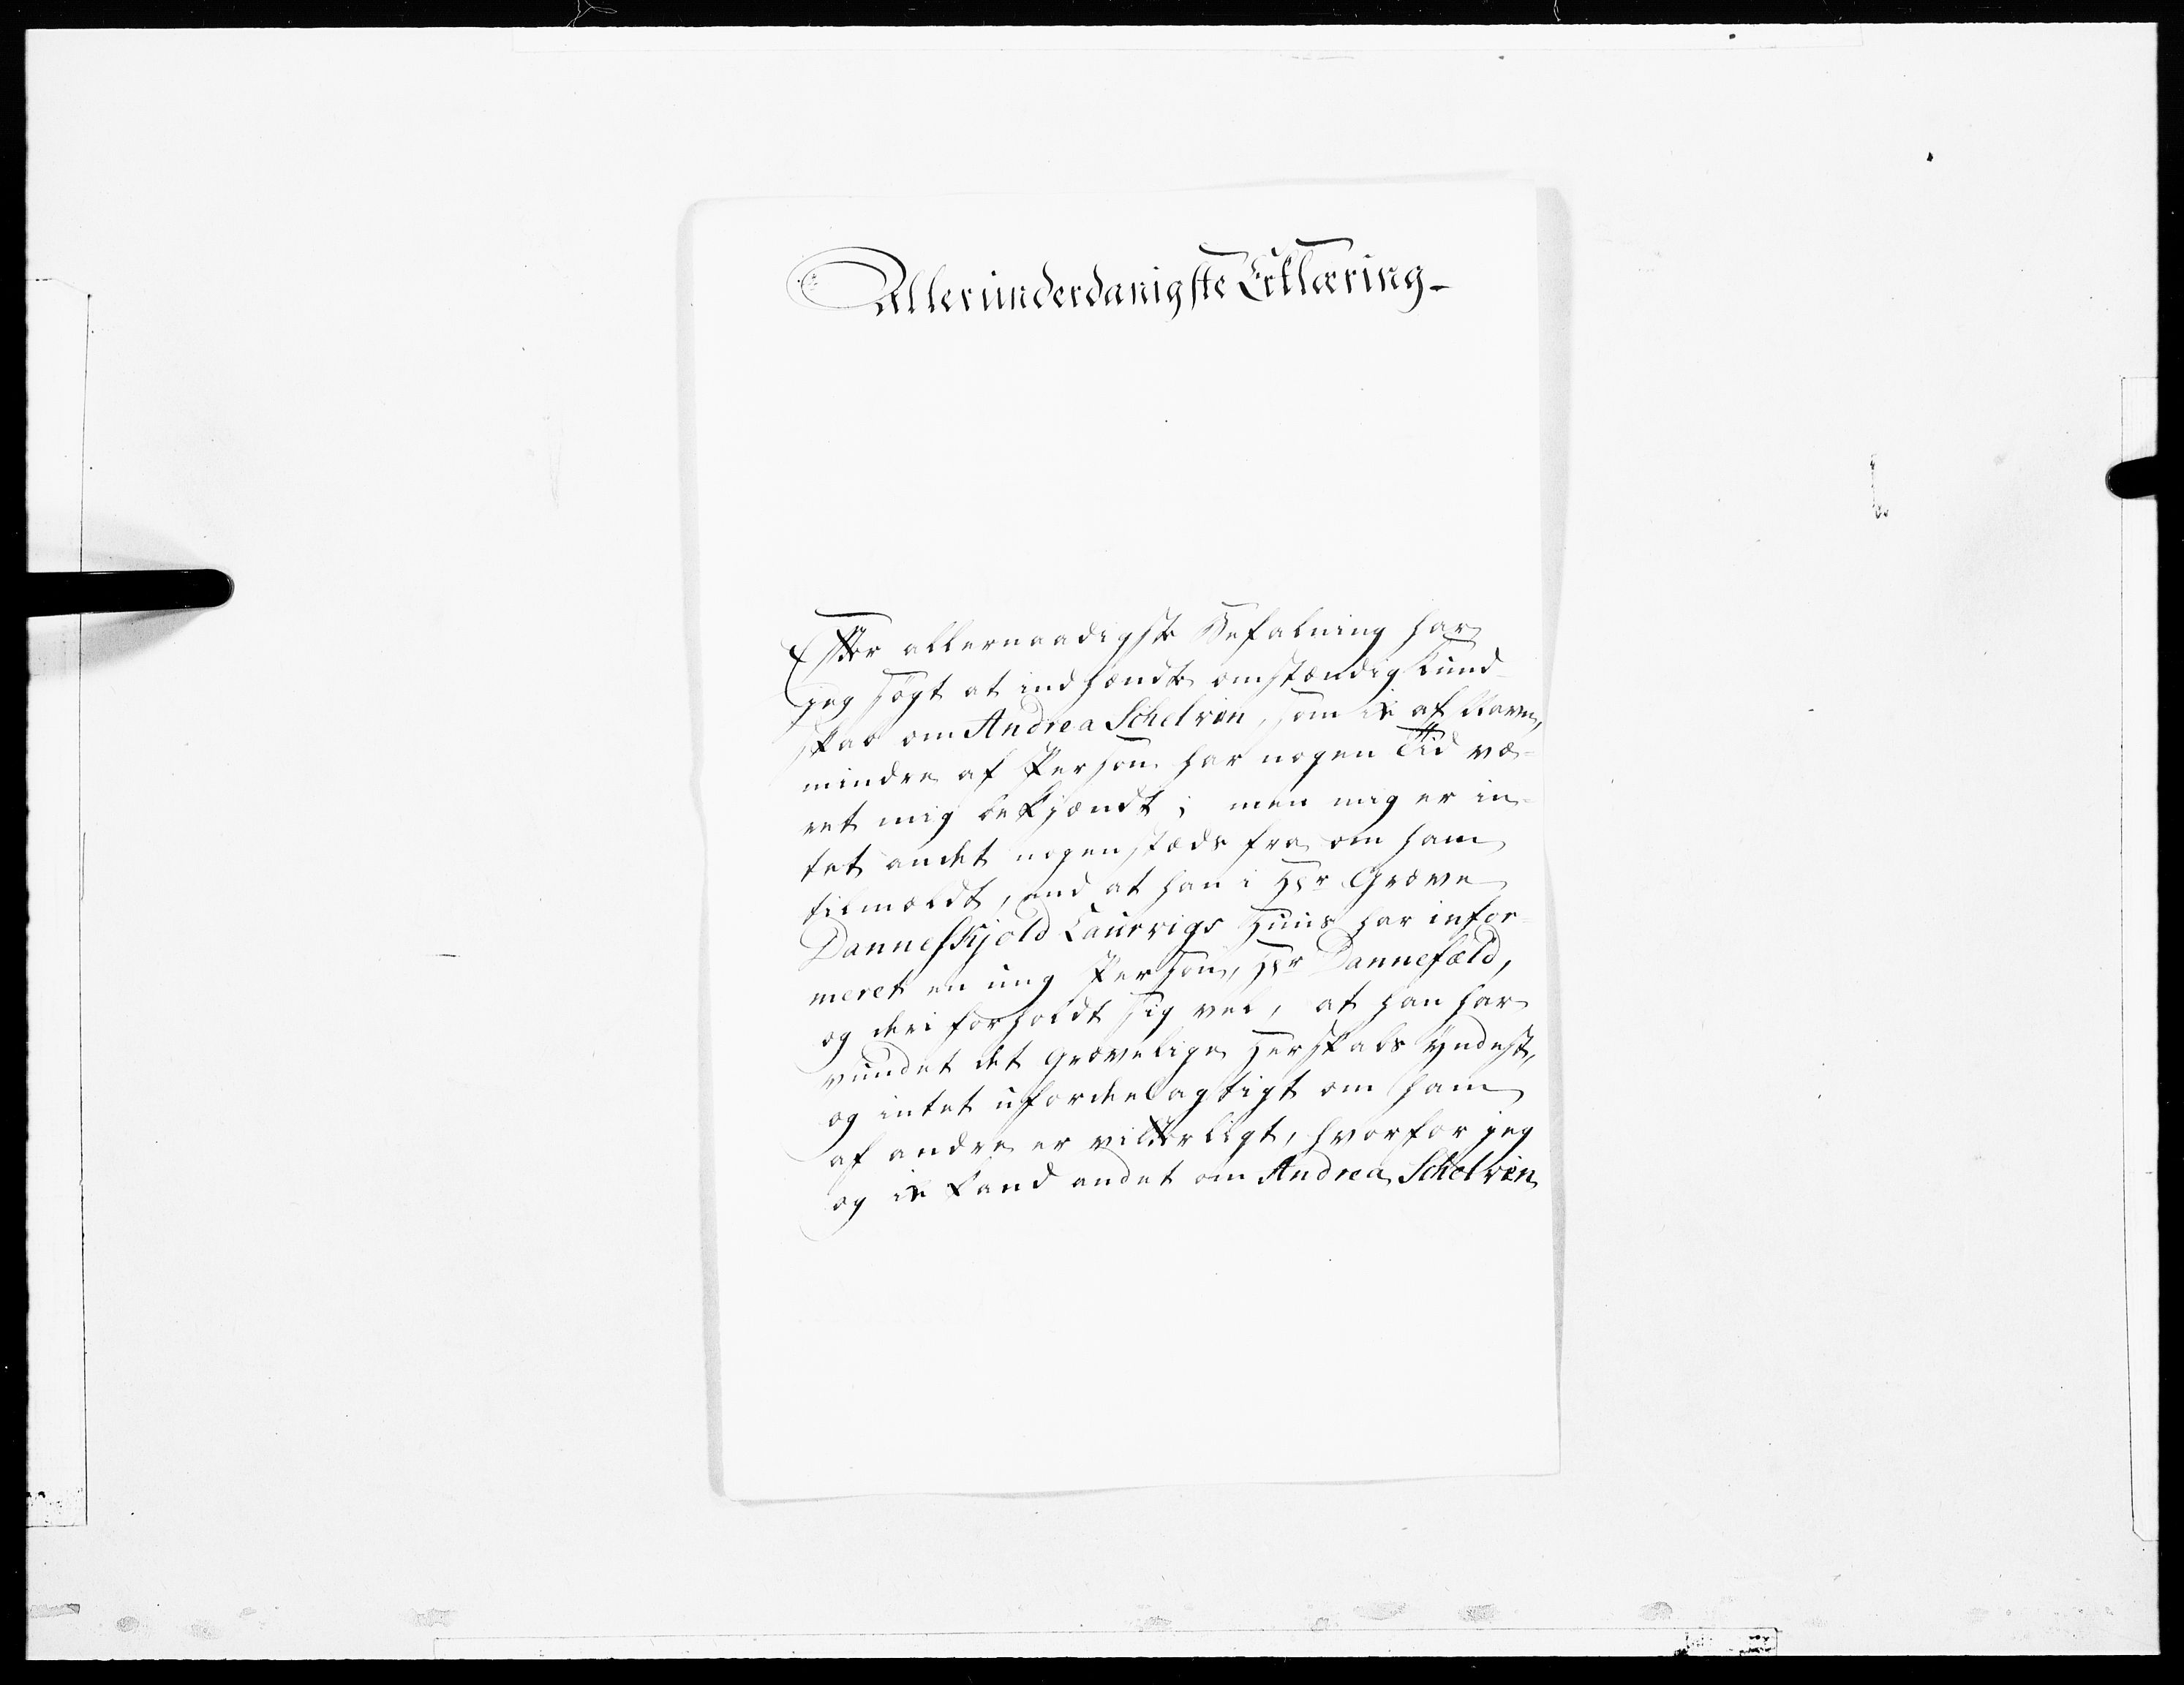 Allerunderdanigste Erklæring-
Efter allernaadigste Befalning har
jeg søgt at indhændte omstændig Kund-
skab om Andrea Schelven, som ei af Navn,
mindre af Person har nogen Tid væ-
ret mig bekjændt; men mig er in-
tet andet nogenstæds fra om ham
tilmeldt, end at han i Hr Græve
Danneskjold Laurvigs Huus har infor-
meret en ung Person, Hr Dannefæld,
og deri forholdt sig vel, at han har
vundet det Grævelige Herskabs Yndest,
og intet ufordeelagtigt om ham
af andre er vitterligt, hvorfor jeg
og ei kand andet om Andrea Schelven